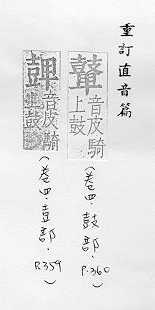 重訂直音篇
音皮騎
上鼓
(卷四.鼓部. P.360)
音皮騎
鼓
(卷四.壴部. P.359)